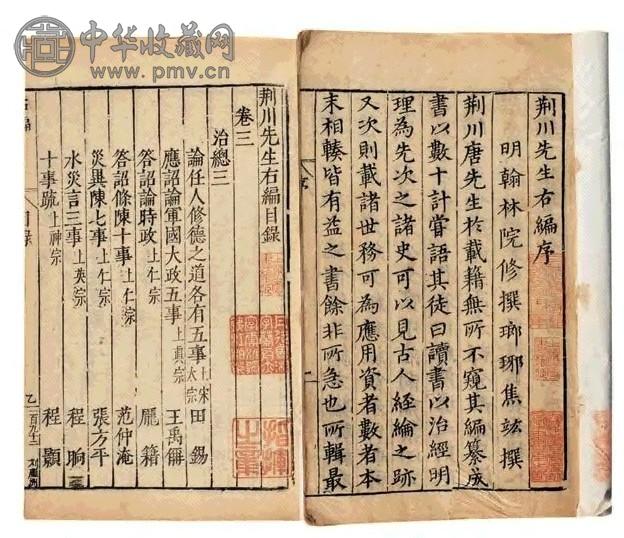 中华收藏网
www.pmv.cn
荆川先生右編序
明翰林院修撰瑯琊焦竑撰
荆川唐先生於載籍無所不窺其編纂成
書以數十計嘗語其徒曰讀書以治經明
理為先次之諸史可以見古人經綸之跡
又次則載諸世務可為應用資者數者本
末相輳皆有益之書餘非所急也所輯最
二
荆川先生右編目錄
卷三
治總三
論任人修德之道各有五事上宋太宗 田錫
應詔論軍國大政五事上真宗 王禹偁
答詔論時政上仁宗 龐籍
答詔條陳十事上仁宗 范仲淹
災異陳七事上仁宗 張方平
水災言三事上英宗 程晌
十事疏上神宗 程顥
目錄
乙 一百九十二